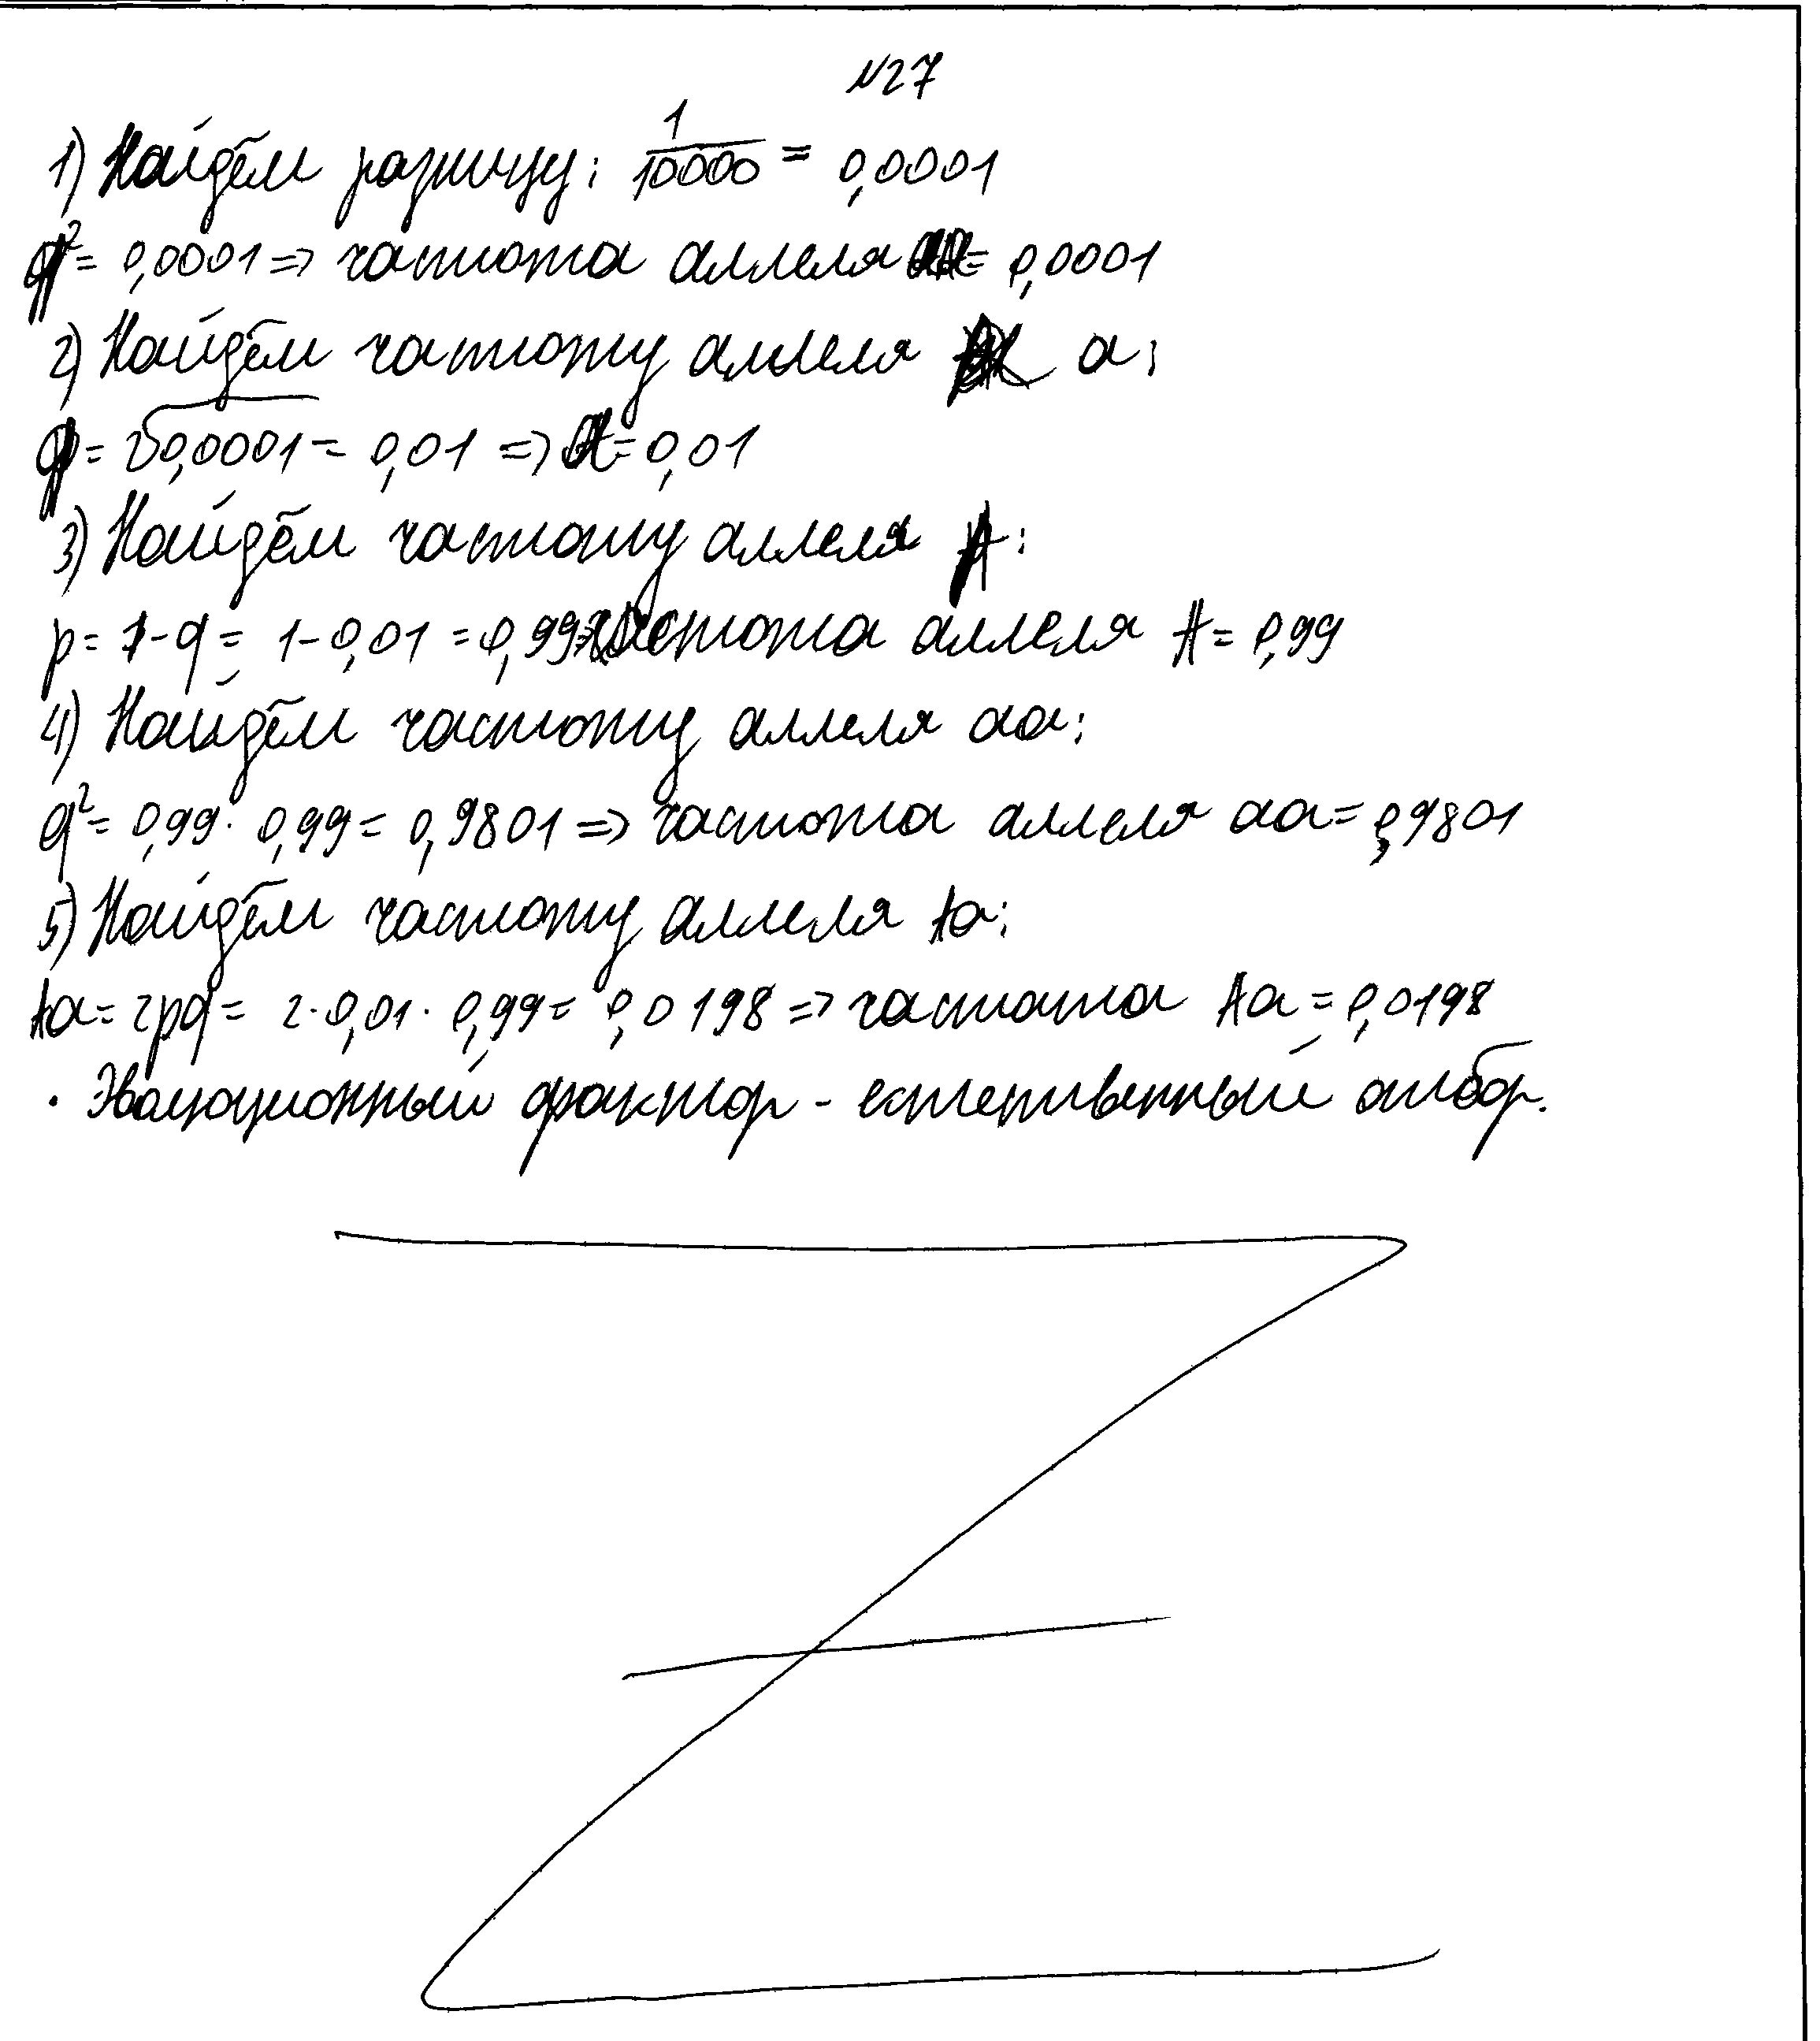 №27
1) Найдём разницу: 1/10000 = 0,0001
q² = 0,0001 => частота аллеля = 0,0001
2) Найдём частоту аллеля а:
q = √0,0001 = 0,01 => = 0,01
3) Найдём частоту аллеля А:
p = 1 - q = 1 - 0,01 = 0,99 частота аллеля А = 0,99
4) Найдём частоту аллеля аа:
q² = 0,99 · 0,99 = 0,9801 => частота аллеля аа = 0,9801
5) Найдём частоту аллеля Аа:
Аа = 2pq = 2 · 0,01 · 0,99 = 0,0198 => частота Аа = 0,0198
· Эволюционный фактор - естественный отбор.